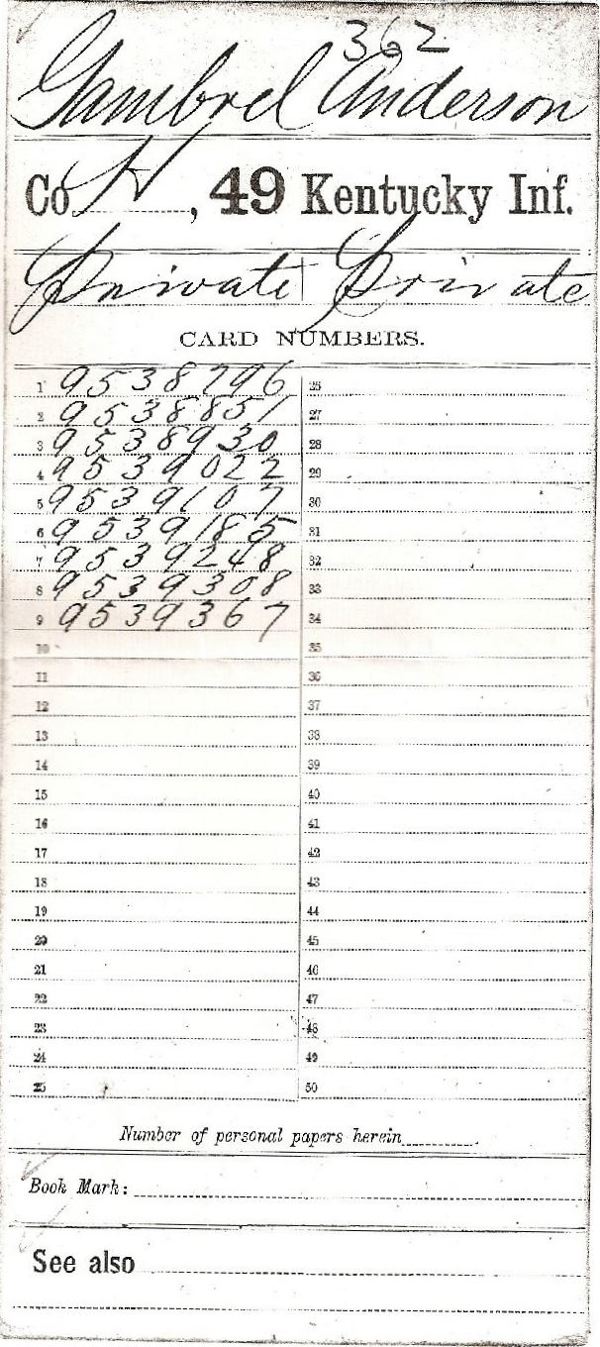 362
Gambrel Anderson
Co H, 49 Kentucky Inf.
Private Private
CARD NUMBERS.
1 9538796 26
2 9538851 27
3 9538930 28
4 9539022 29
5 9539107 30
6 9539185 31
7 9539248 32
8 9539308 33
9 9539367 34
10 35
11 36
12 37
13 38
14 39
15 40
16 41
17 42
18 43
19 44
20 45
21 46
22 47
23 48
24 49
25 50
Number of personal papers herein
Book Mark:
See also